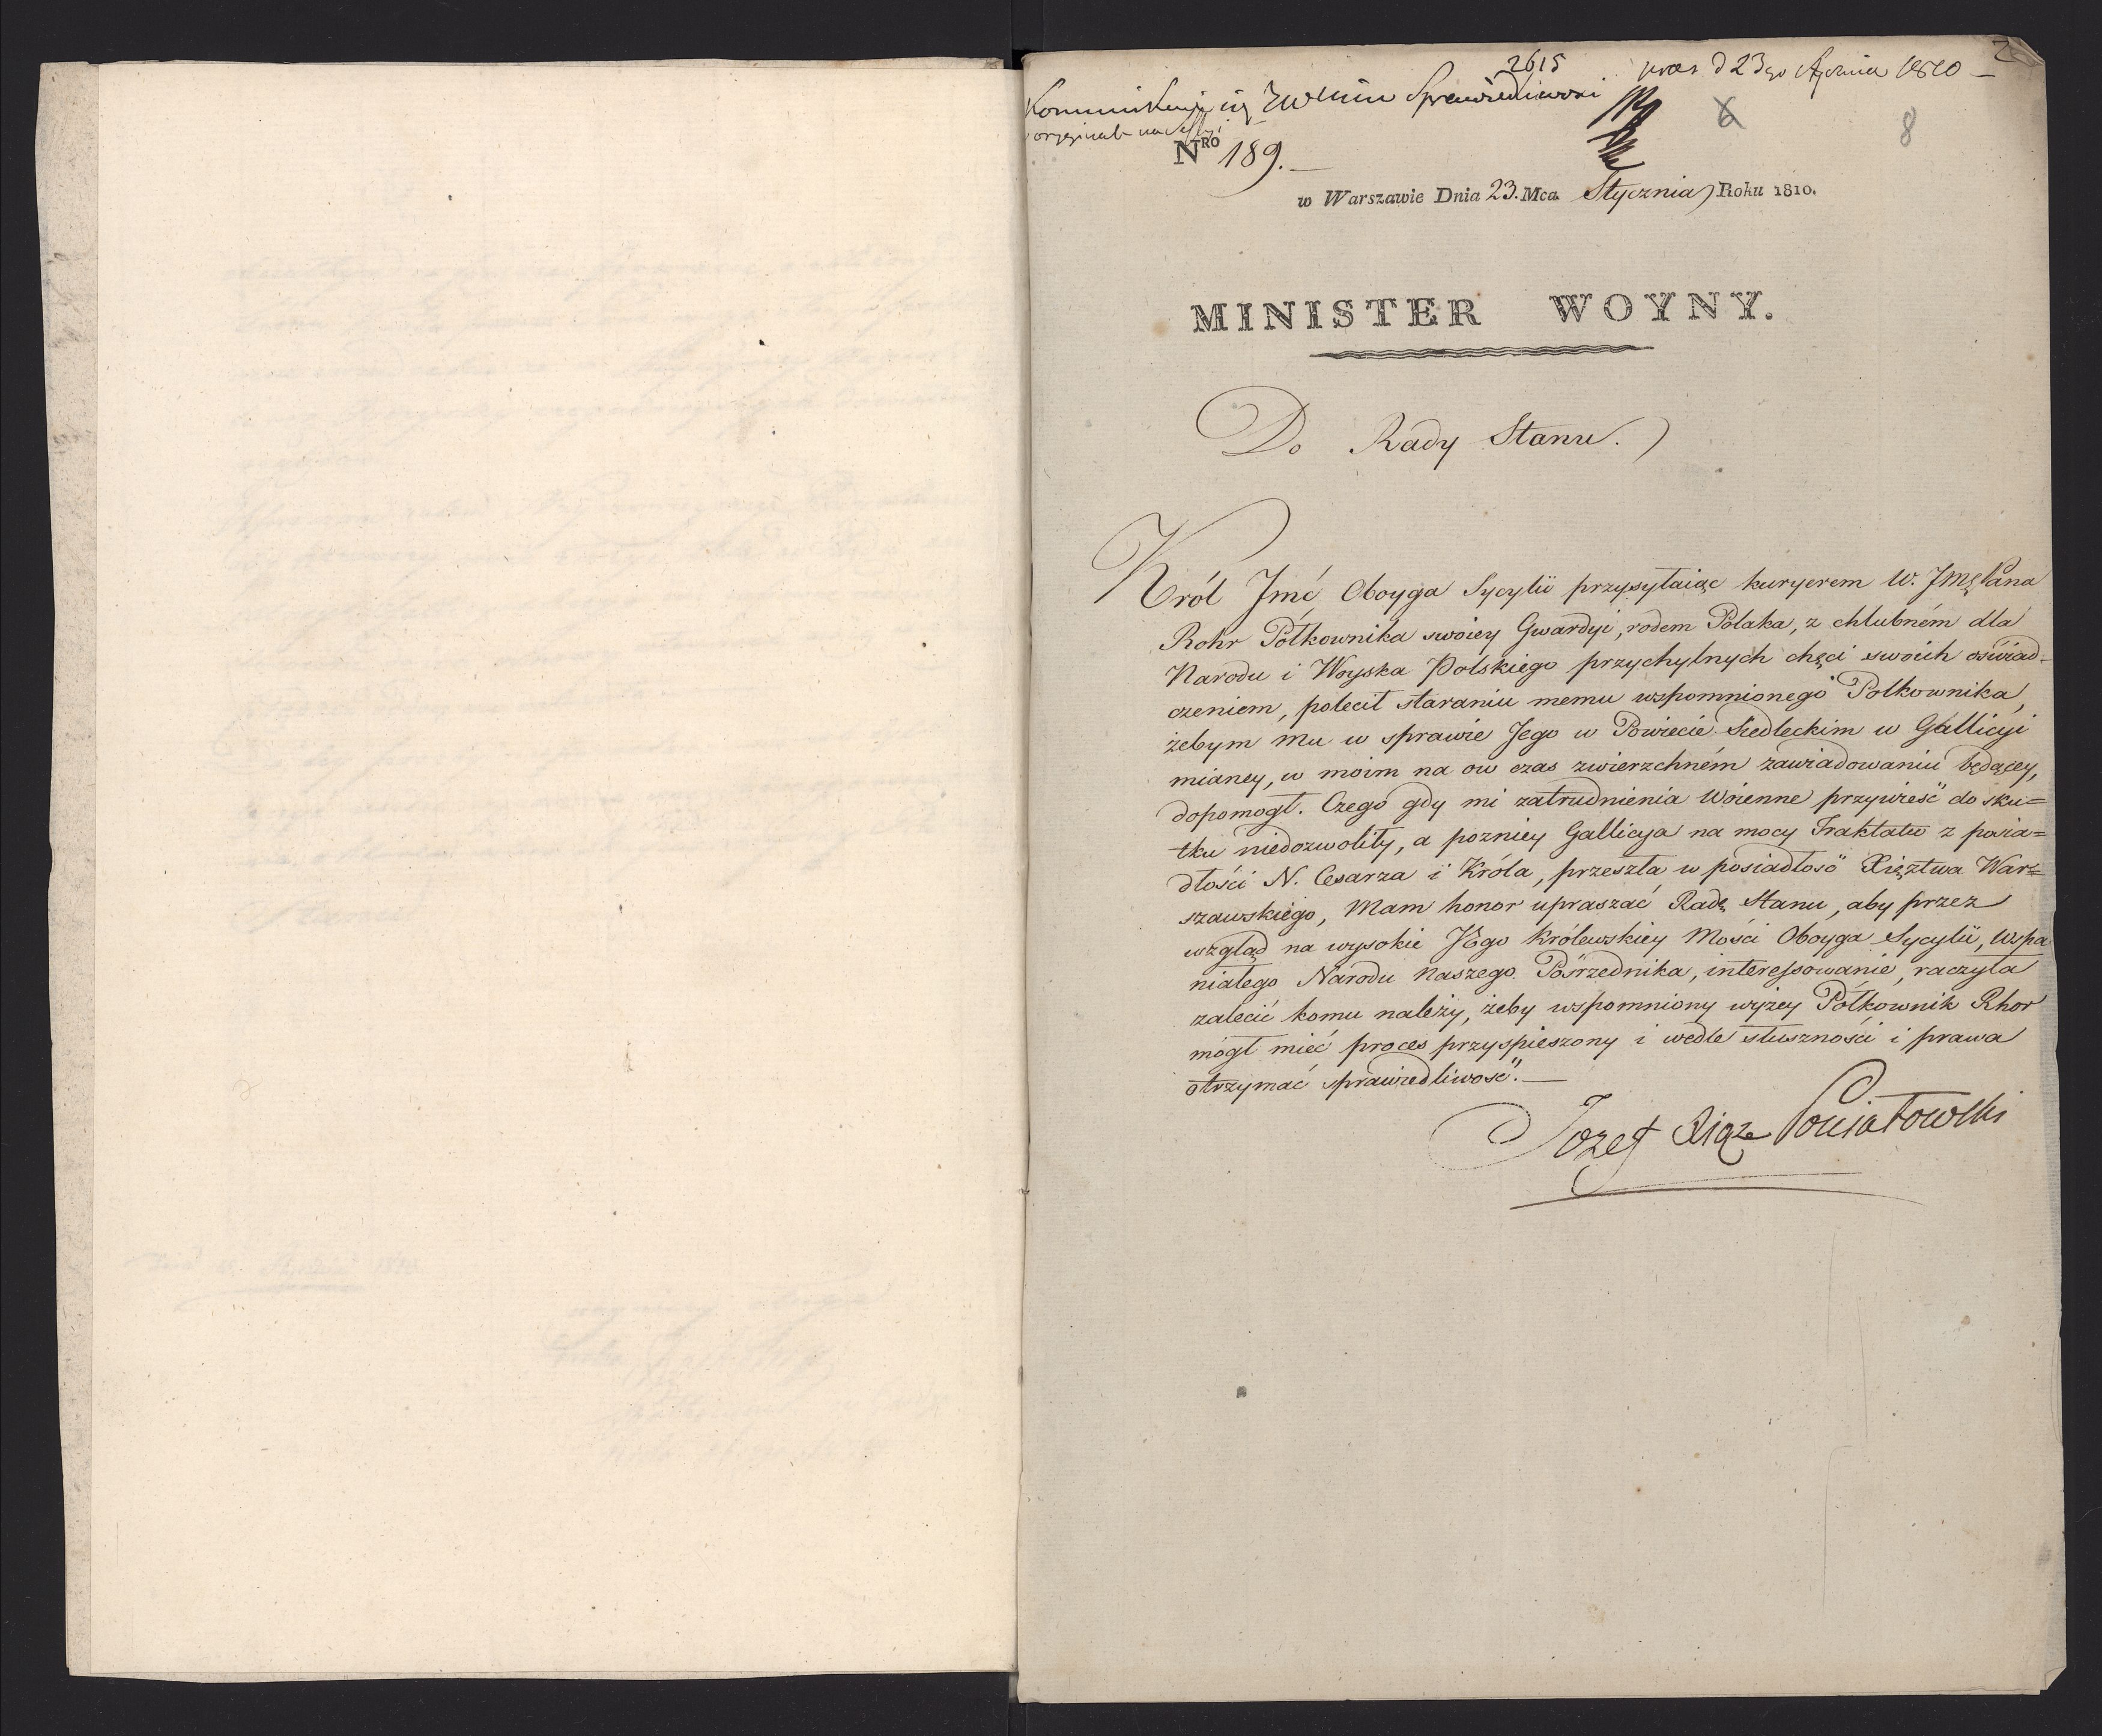 2615
praes d 23go Stycznia 1810 —
2
Kommunikuje się JW Minir Sprawiedliwości
oryginał na Sessyi
6
8
NRO 189. —
w Warszawie Dnia 23. Mca Stycznia Roku 1810.
MINISTER WOYNY.
Do Rady Stanu.
Król Jmć Oboyga Sycylii przysyłaiąc kuryerem W. JMę Pana
Rohr Półkownika swoiey Gwardyi, rodem Polaka, z chlubném dla
Narodu i Woyska Polskiego przychylnych chęci swoich oświad-
czeniem, polecił staraniu memu wspomnionego Połkownika,
żebym mu w sprawie Jego w Powiecie Siedleckim w Gallicyi
mianey, w moim na ow czas zwierzchném zawiadowaniu będącey,
dopomogł. Czego gdy mi zatrudnienia Woienne przywieść do sku=
tku niedozwoliły, a pozniey Gallicya na mocy Traktatu z posia=
dłości N. Cesarza i Króla, przeszła w posiadłość Xięztwa War=
szawskiego, Mam honor upraszać Radę Stanu, aby przez
wzgląd na wysokie JEgo Królewskiey Mości Oboyga Sycylii, wspa
niałego Narodu Naszego Pośrzednika, interessowanie, raczyła
zalecić komu należy, żeby wspomniony wyżey Półkownik Rhor
mógł mieć proces przyspieszony i wedle słuszności i prawa
otrzymać sprawiedliwość. —
Jozef Xiąze Poniatowski